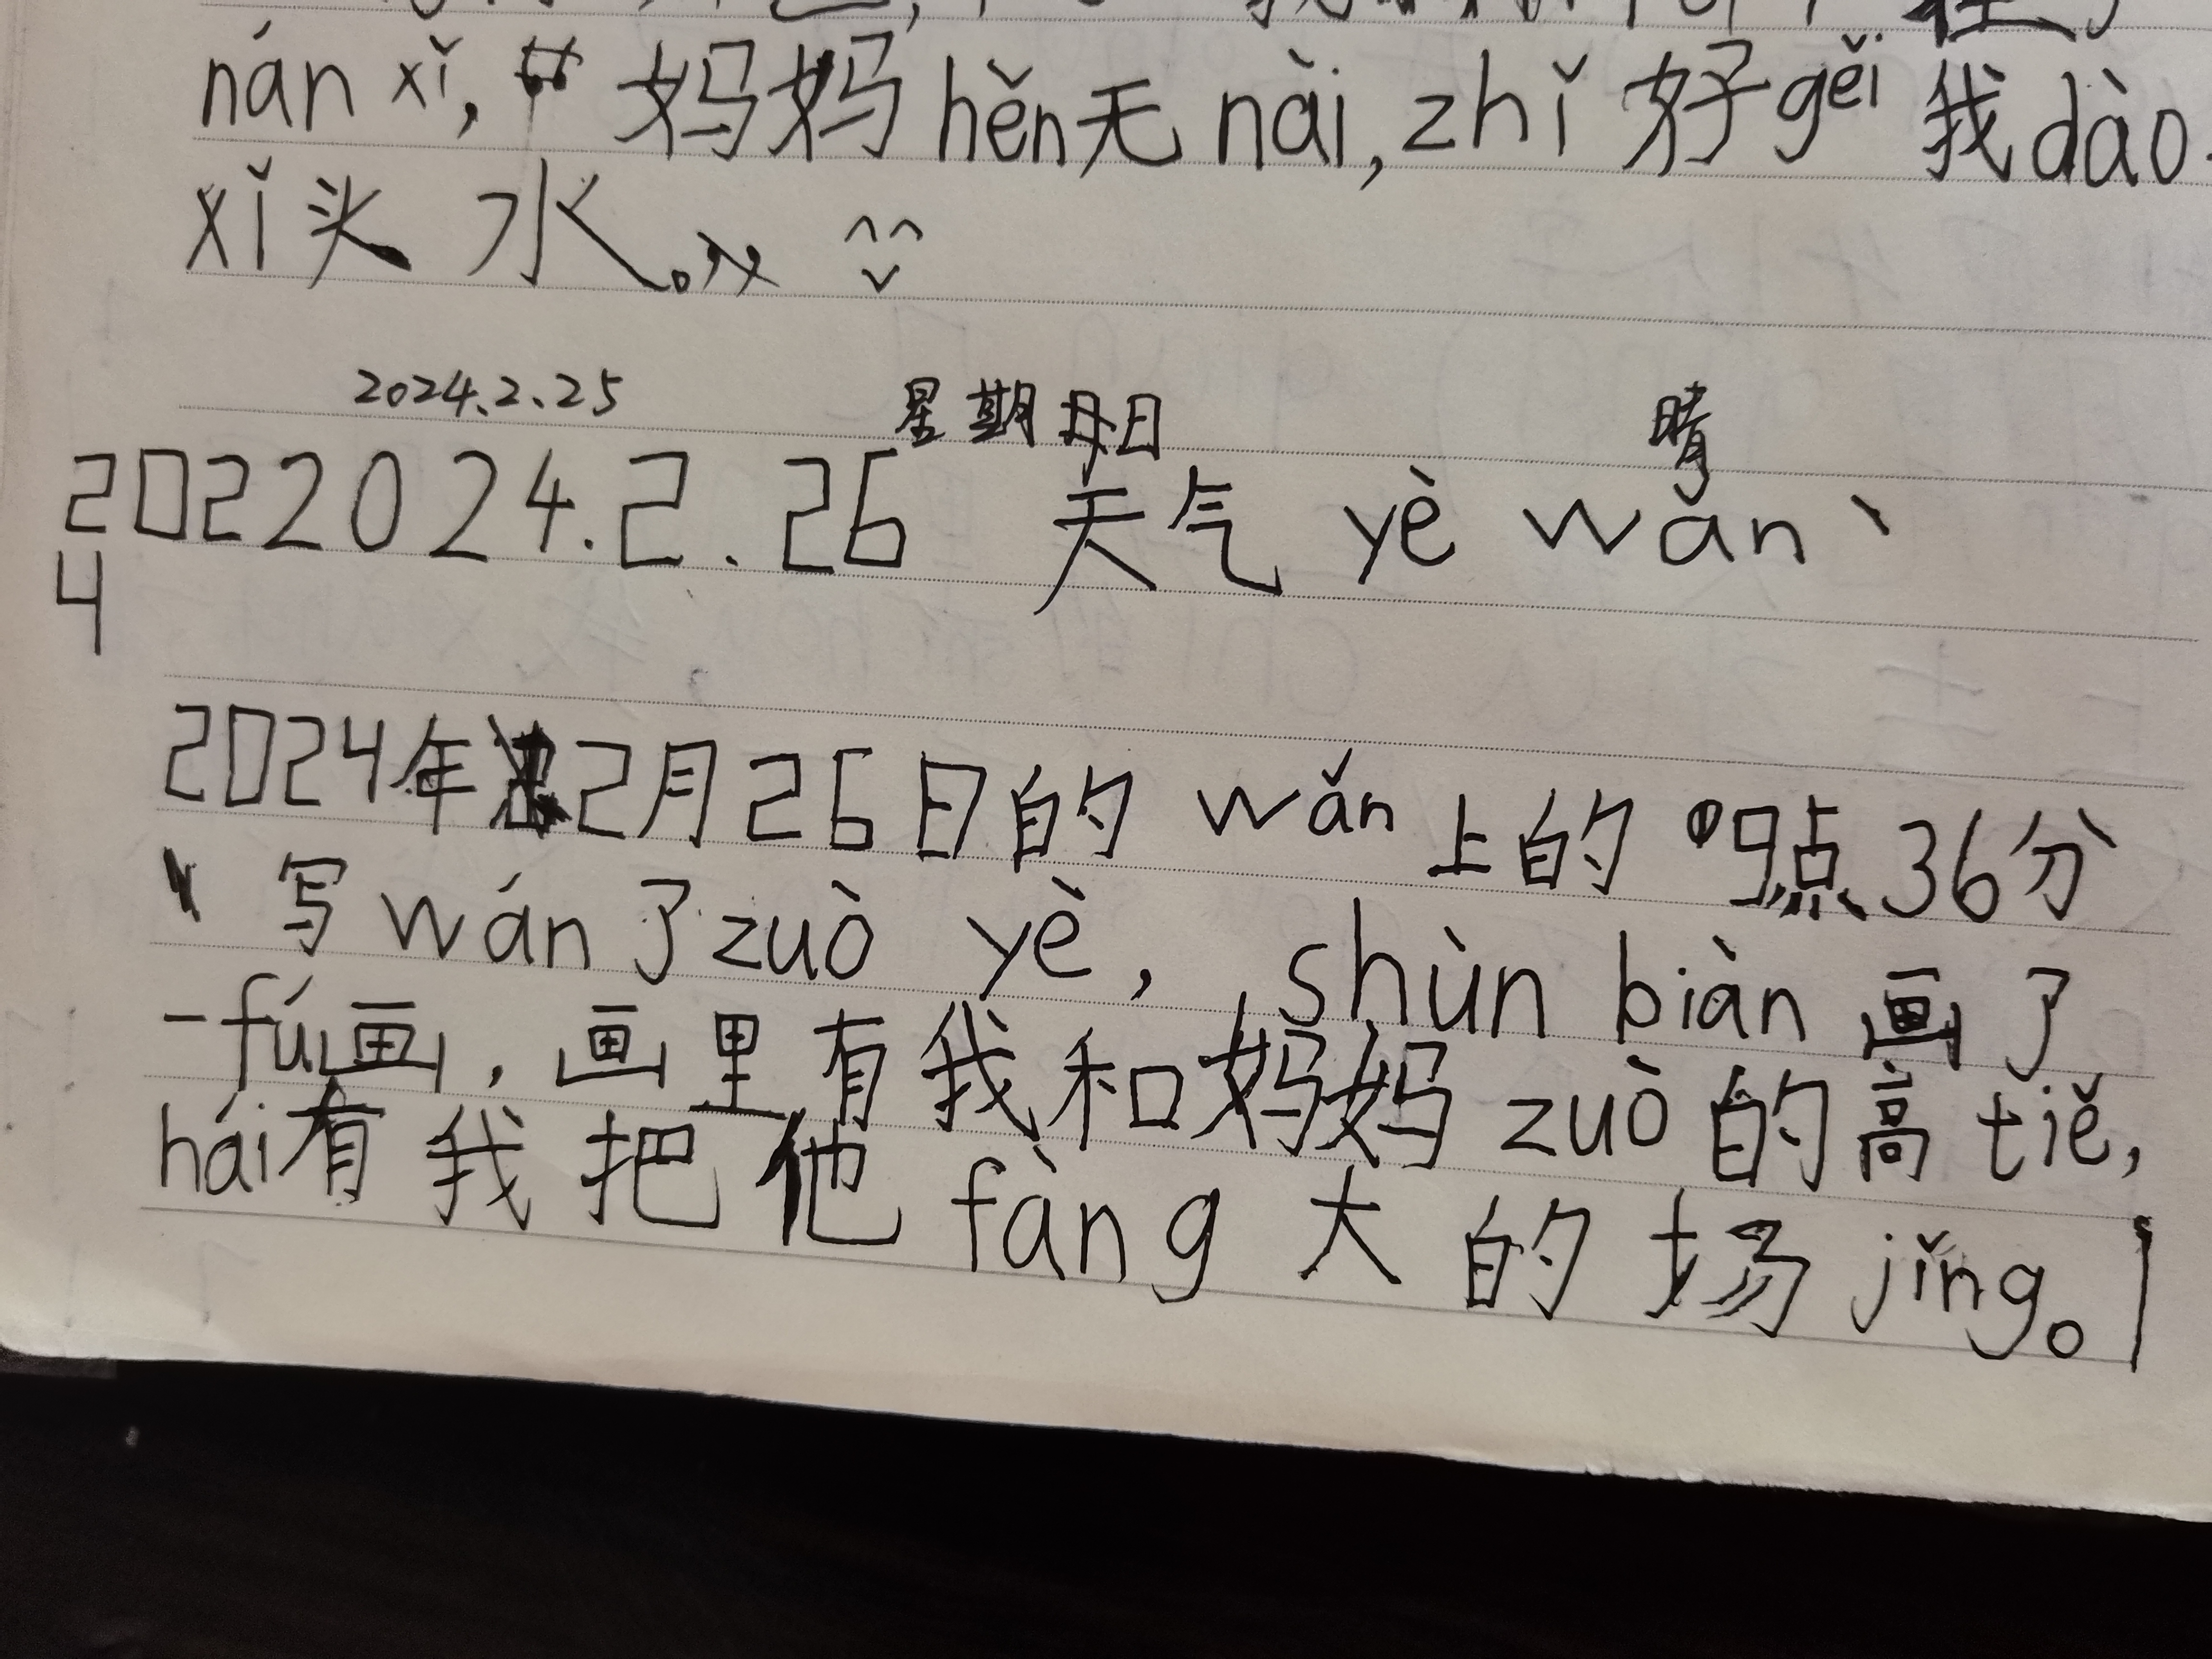 nán xǐ，妈妈hěn无nài，zhǐ好gěi我dào
xǐ头水。
2024.2.25 星期日 晴
2022024.2.26 天气 yè wǎn、
4
2024年2月26日的wǎn上的9点36分
、写wán了zuò yè，shùn biàn画了
一fú画，画里有我和妈妈zuò的高tiě，
hái有我把他fàng大的场jǐng。